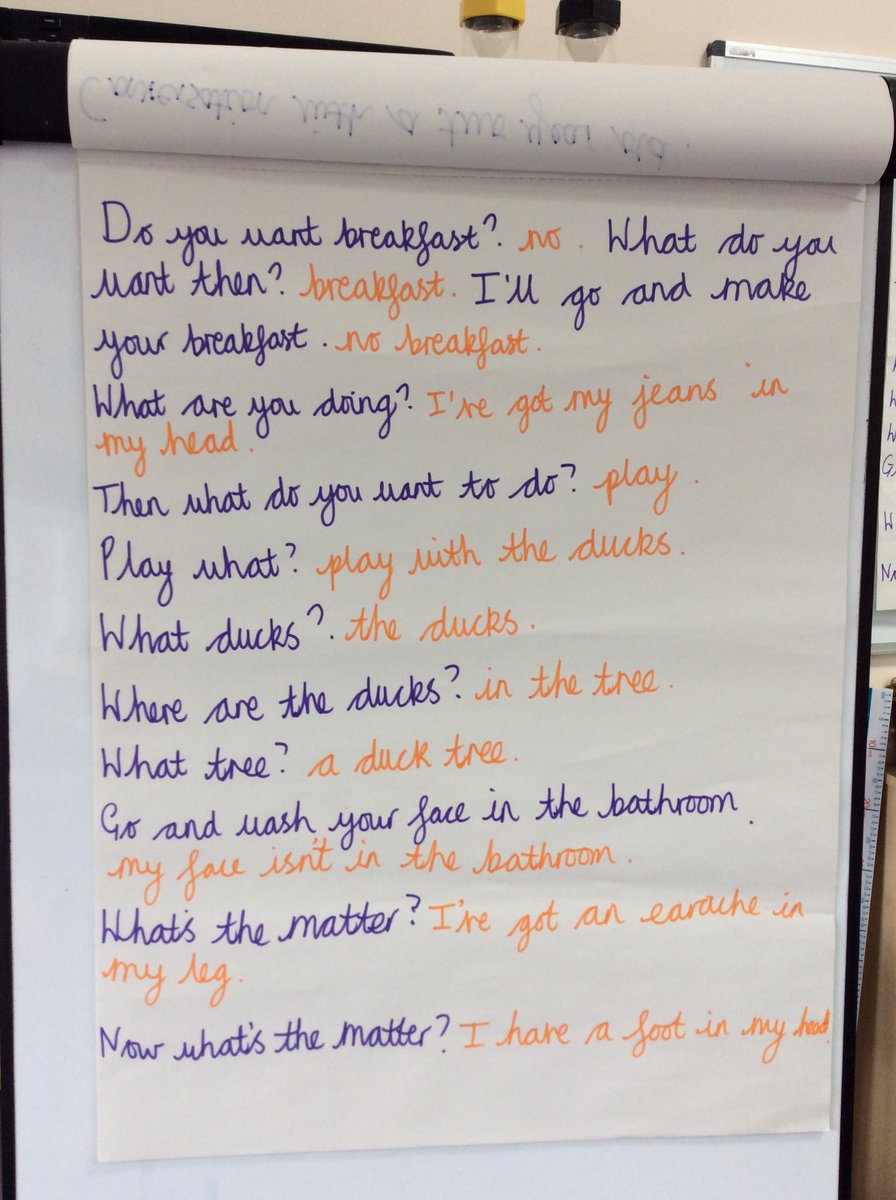 Conversation with a two year old.
Do you want breakfast? no. What do you
want then? breakfast. I'll go and make
your breakfast. no breakfast.
What are you doing? I've got my jeans in
my head.
Then what do you want to do? play.
Play what? play with the ducks.
What ducks?. the ducks.
Where are the ducks? in the tree.
What tree? a duck tree.
Go and wash your face in the bathroom.
my face isn't in the bathroom.
What's the matter? I've got an earache in
my leg.
Now what's the matter? I have a foot in my head.